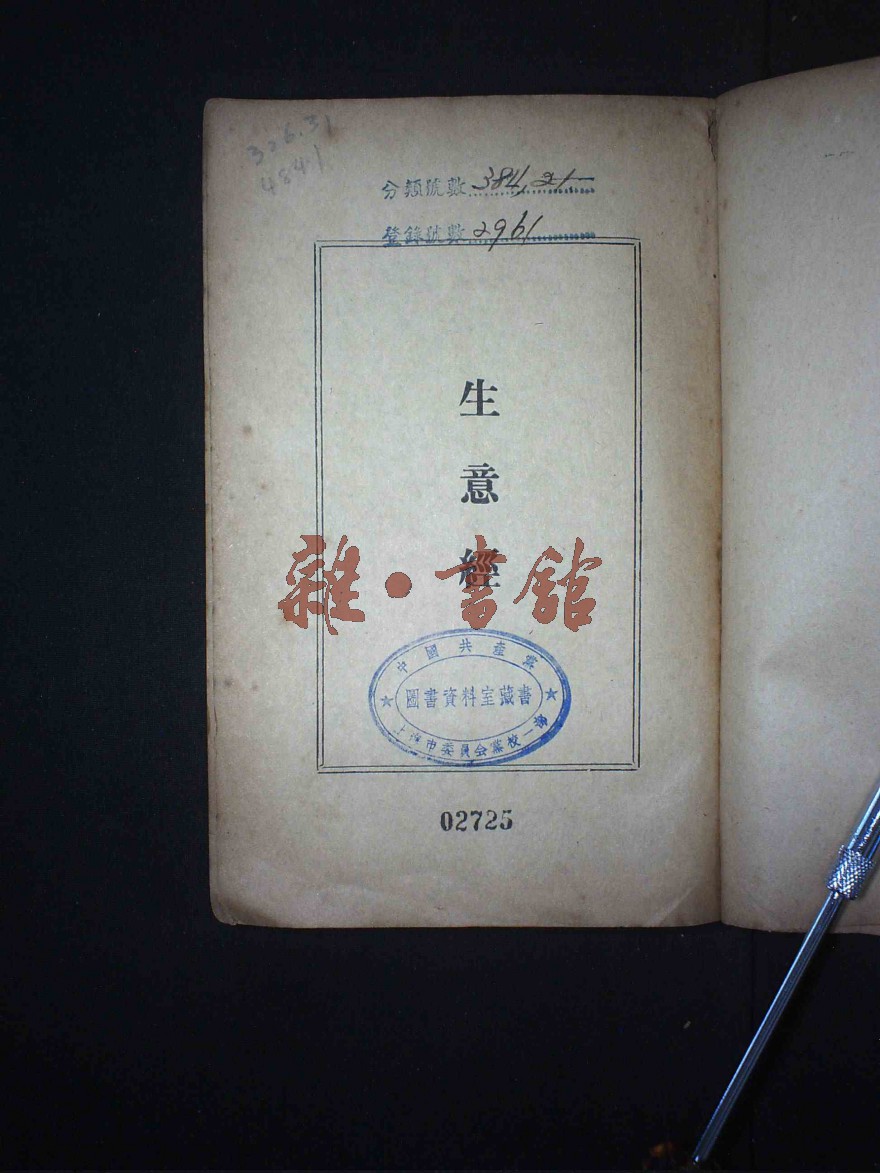 326.31
4841
分類號數 384.21
登錄號數 2961
生意經
雜·書館
中國共產黨
圖書資料室藏書
上海市委員会黨校一部
02725